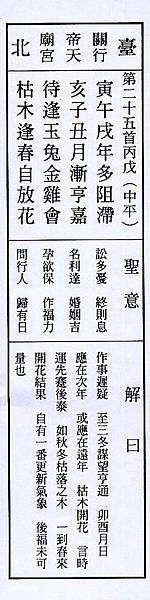 臺北
關帝廟
行天宮
第二十五首丙戊（中平）
寅午戌年多阻滯
亥子丑月漸亨嘉
待逢玉兔金雞會
枯木逢春自放花
聖意
訟多憂　終則息
名利達　婚姻吉
孕欲保　作福力
問行人　歸有日
解曰
作事遲疑　至三冬謀望亨通　卯酉月日
應在次年　或應在遠年　枯木開花　言時
運先蹇後泰　如秋冬枯落之木　一到春來
開花結果　自有一番更新氣象　後福未可
量也